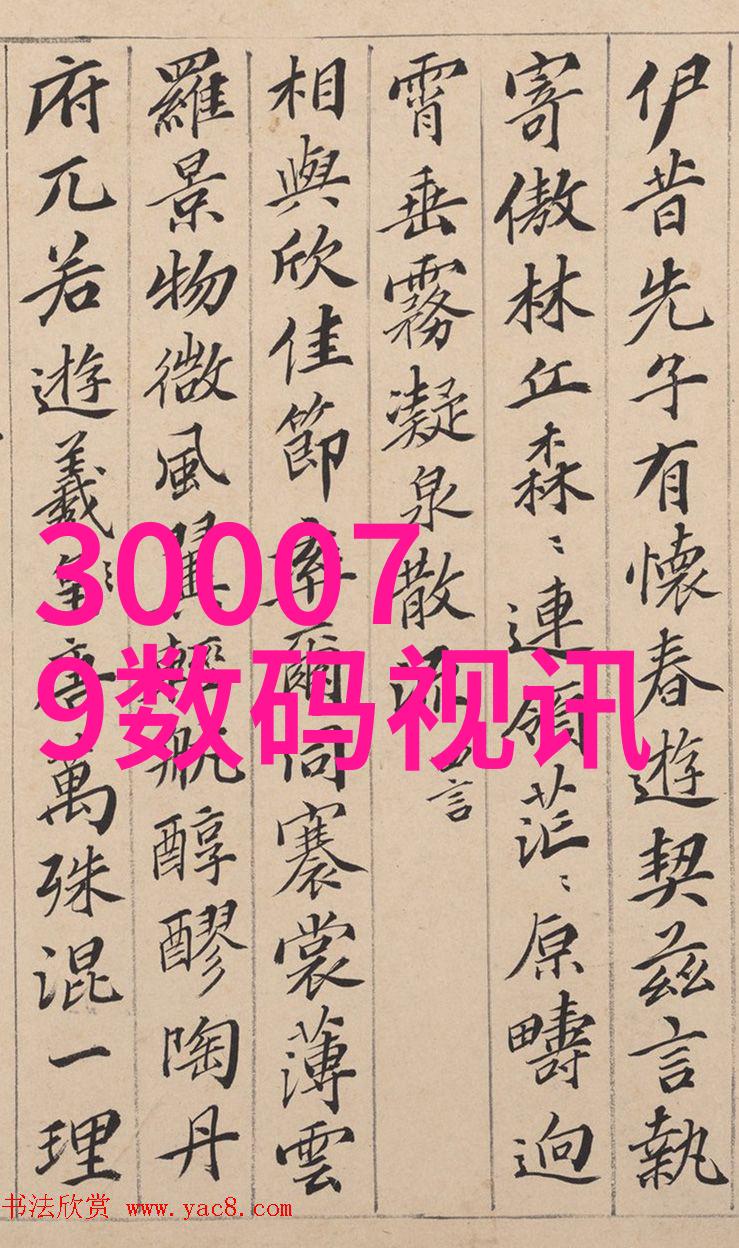 伊昔先子有懷春遊契茲言執
寄傲林丘森〻連領茫〻原疇逈
霄垂霧凝泉散流 言
相與欣佳節率爾同褰裳薄雲
羅景物微風翼輕航醇醪陶丹
府兀若遊羲唐萬殊混一理
30007
9数码视讯
书法欣赏 www.yac8.com